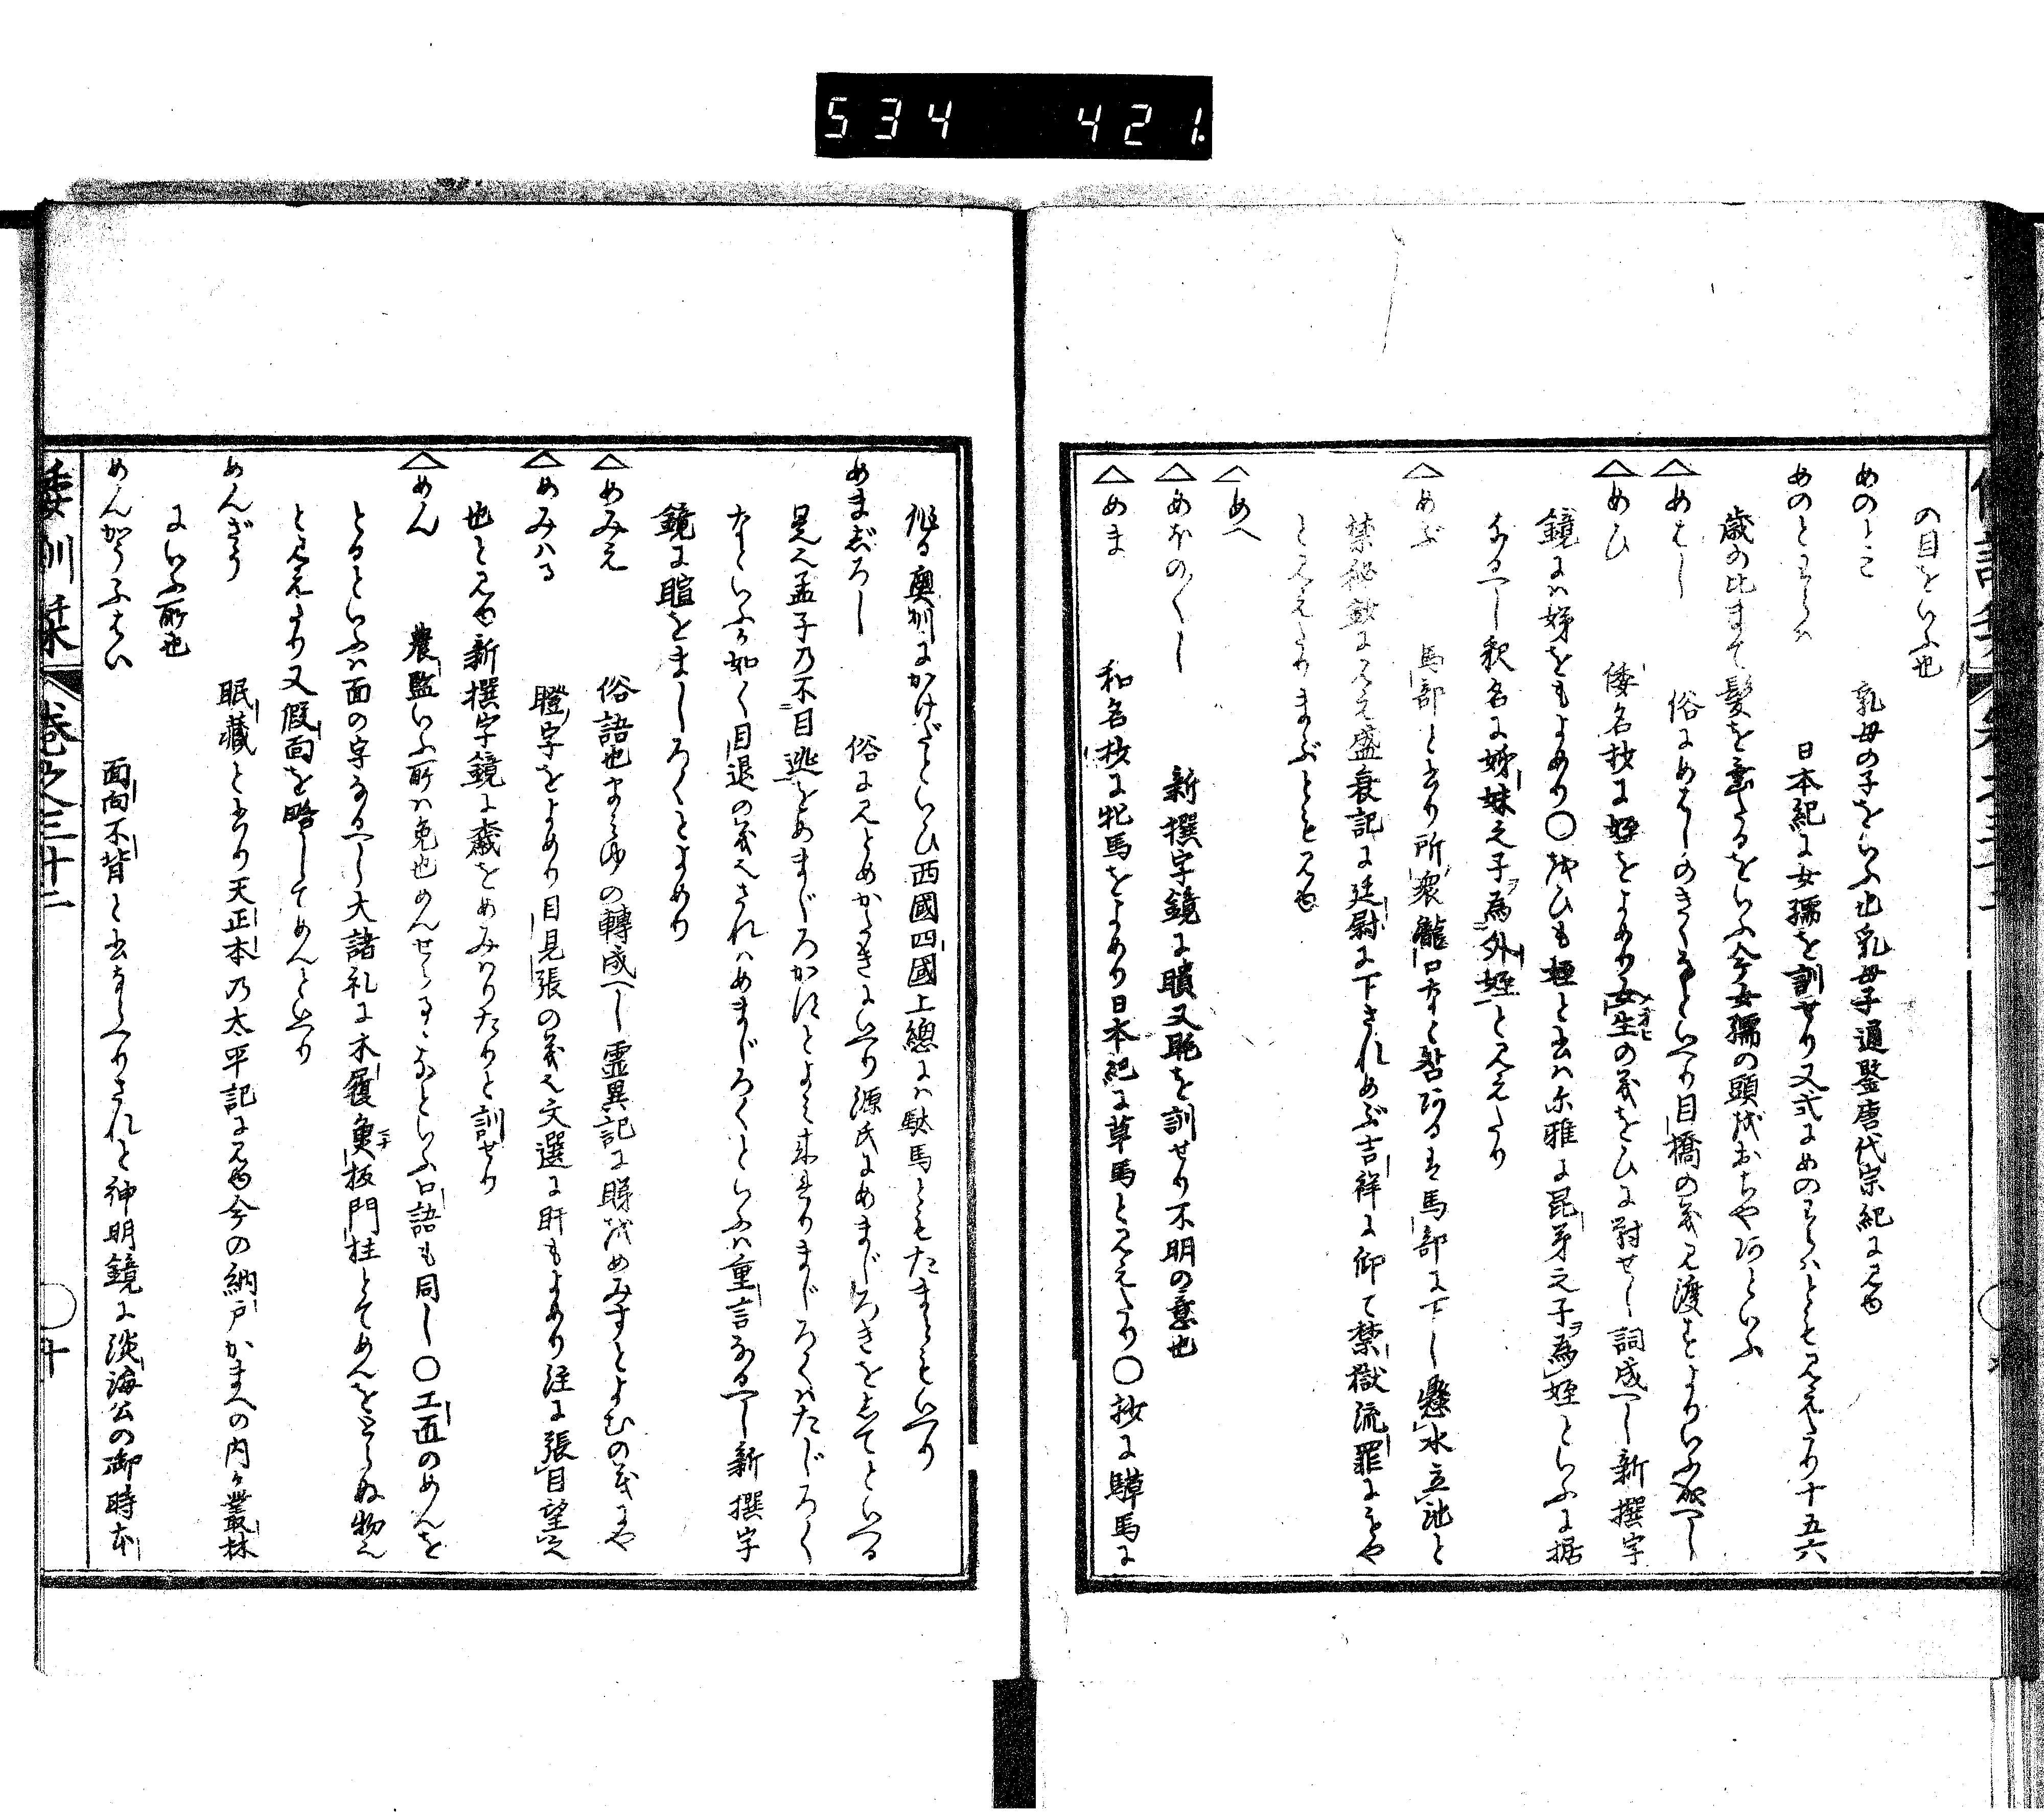 534 421.
の目をいふ也
めのとこ 乳母の子をいふ也乳母子通鑒唐代宗紀に見ゆ
めのとわらハ 日本紀に女孺を訓せり又式にめのわらハとも見えたり十五六
歳の比まて髪を垂たるをいふ今女孺の頭をおちや阿といふ
△めはし 俗にめはしのきくなといへり目橋の義見渡すよりいふ成へし
△めひ 倭名抄に姪をよめり女生の義をひに対せし詞成へし新撰字
鏡にハ娣をもよめり○をひも姪と書ハ尓雅に昆弟之子ヲ為姪といふに据
なるへし釈名に姊妹之子ヲ為外姪と見えたり
△めぶ 馬部と書り所衆瀧口なと召つる馬部に下し懸水立池と
禁秘鈔に見え盛衰記に廷尉に下されめぶ吉祥に仰て禁獄流罪にをや
と見えたりまぶとも見ゆ
△めへ
△めほのくし 新撰字鏡に瞶又眊を訓せり不明の意也
△めま 和名抄に牝馬をよめり日本紀に草馬と見えたり○抄に騲馬に
作る奥州にかけだといひ西國四國上總にハ駄馬ともたまともいへり
めまぢろし 俗に見とめかたきにいへり源氏にめまじろきをしてといへる
是也孟子乃不目逃をめまじろかずとよみ来れりまじろくハたじろく
なといふか如く目退の義也されハめまじろくといふハ重言なるへし新撰字
鏡に暄をましろくとよめり
△めみえ 俗語也まみゆの轉成へし霊異記に睇をめみすとよむの義にや
△めみハる 瞪字をよめり目見張の義也文選に盱もよめり注に張目望也
也と見ゆ新撰字鏡に䁾をめみはりたりと訓せり
△めん 農監いふ所ハ免也めんせらるゝなといふ口語も同し○工匠のめんを
とるといふハ面の字なるへし大諸礼に木履負板門柱とてめんをとらぬ物也
と見えたり又假面を略してめんといへり
めんざう 眠藏と書り天正本乃太平記に見ゆ今の納戸かまへの内か叢林
にいふ所也
めんかうふはい 面向不背と書ならへりされと神明鏡に淡海公の御時本
倭訓栞 巻之三十二 ○十